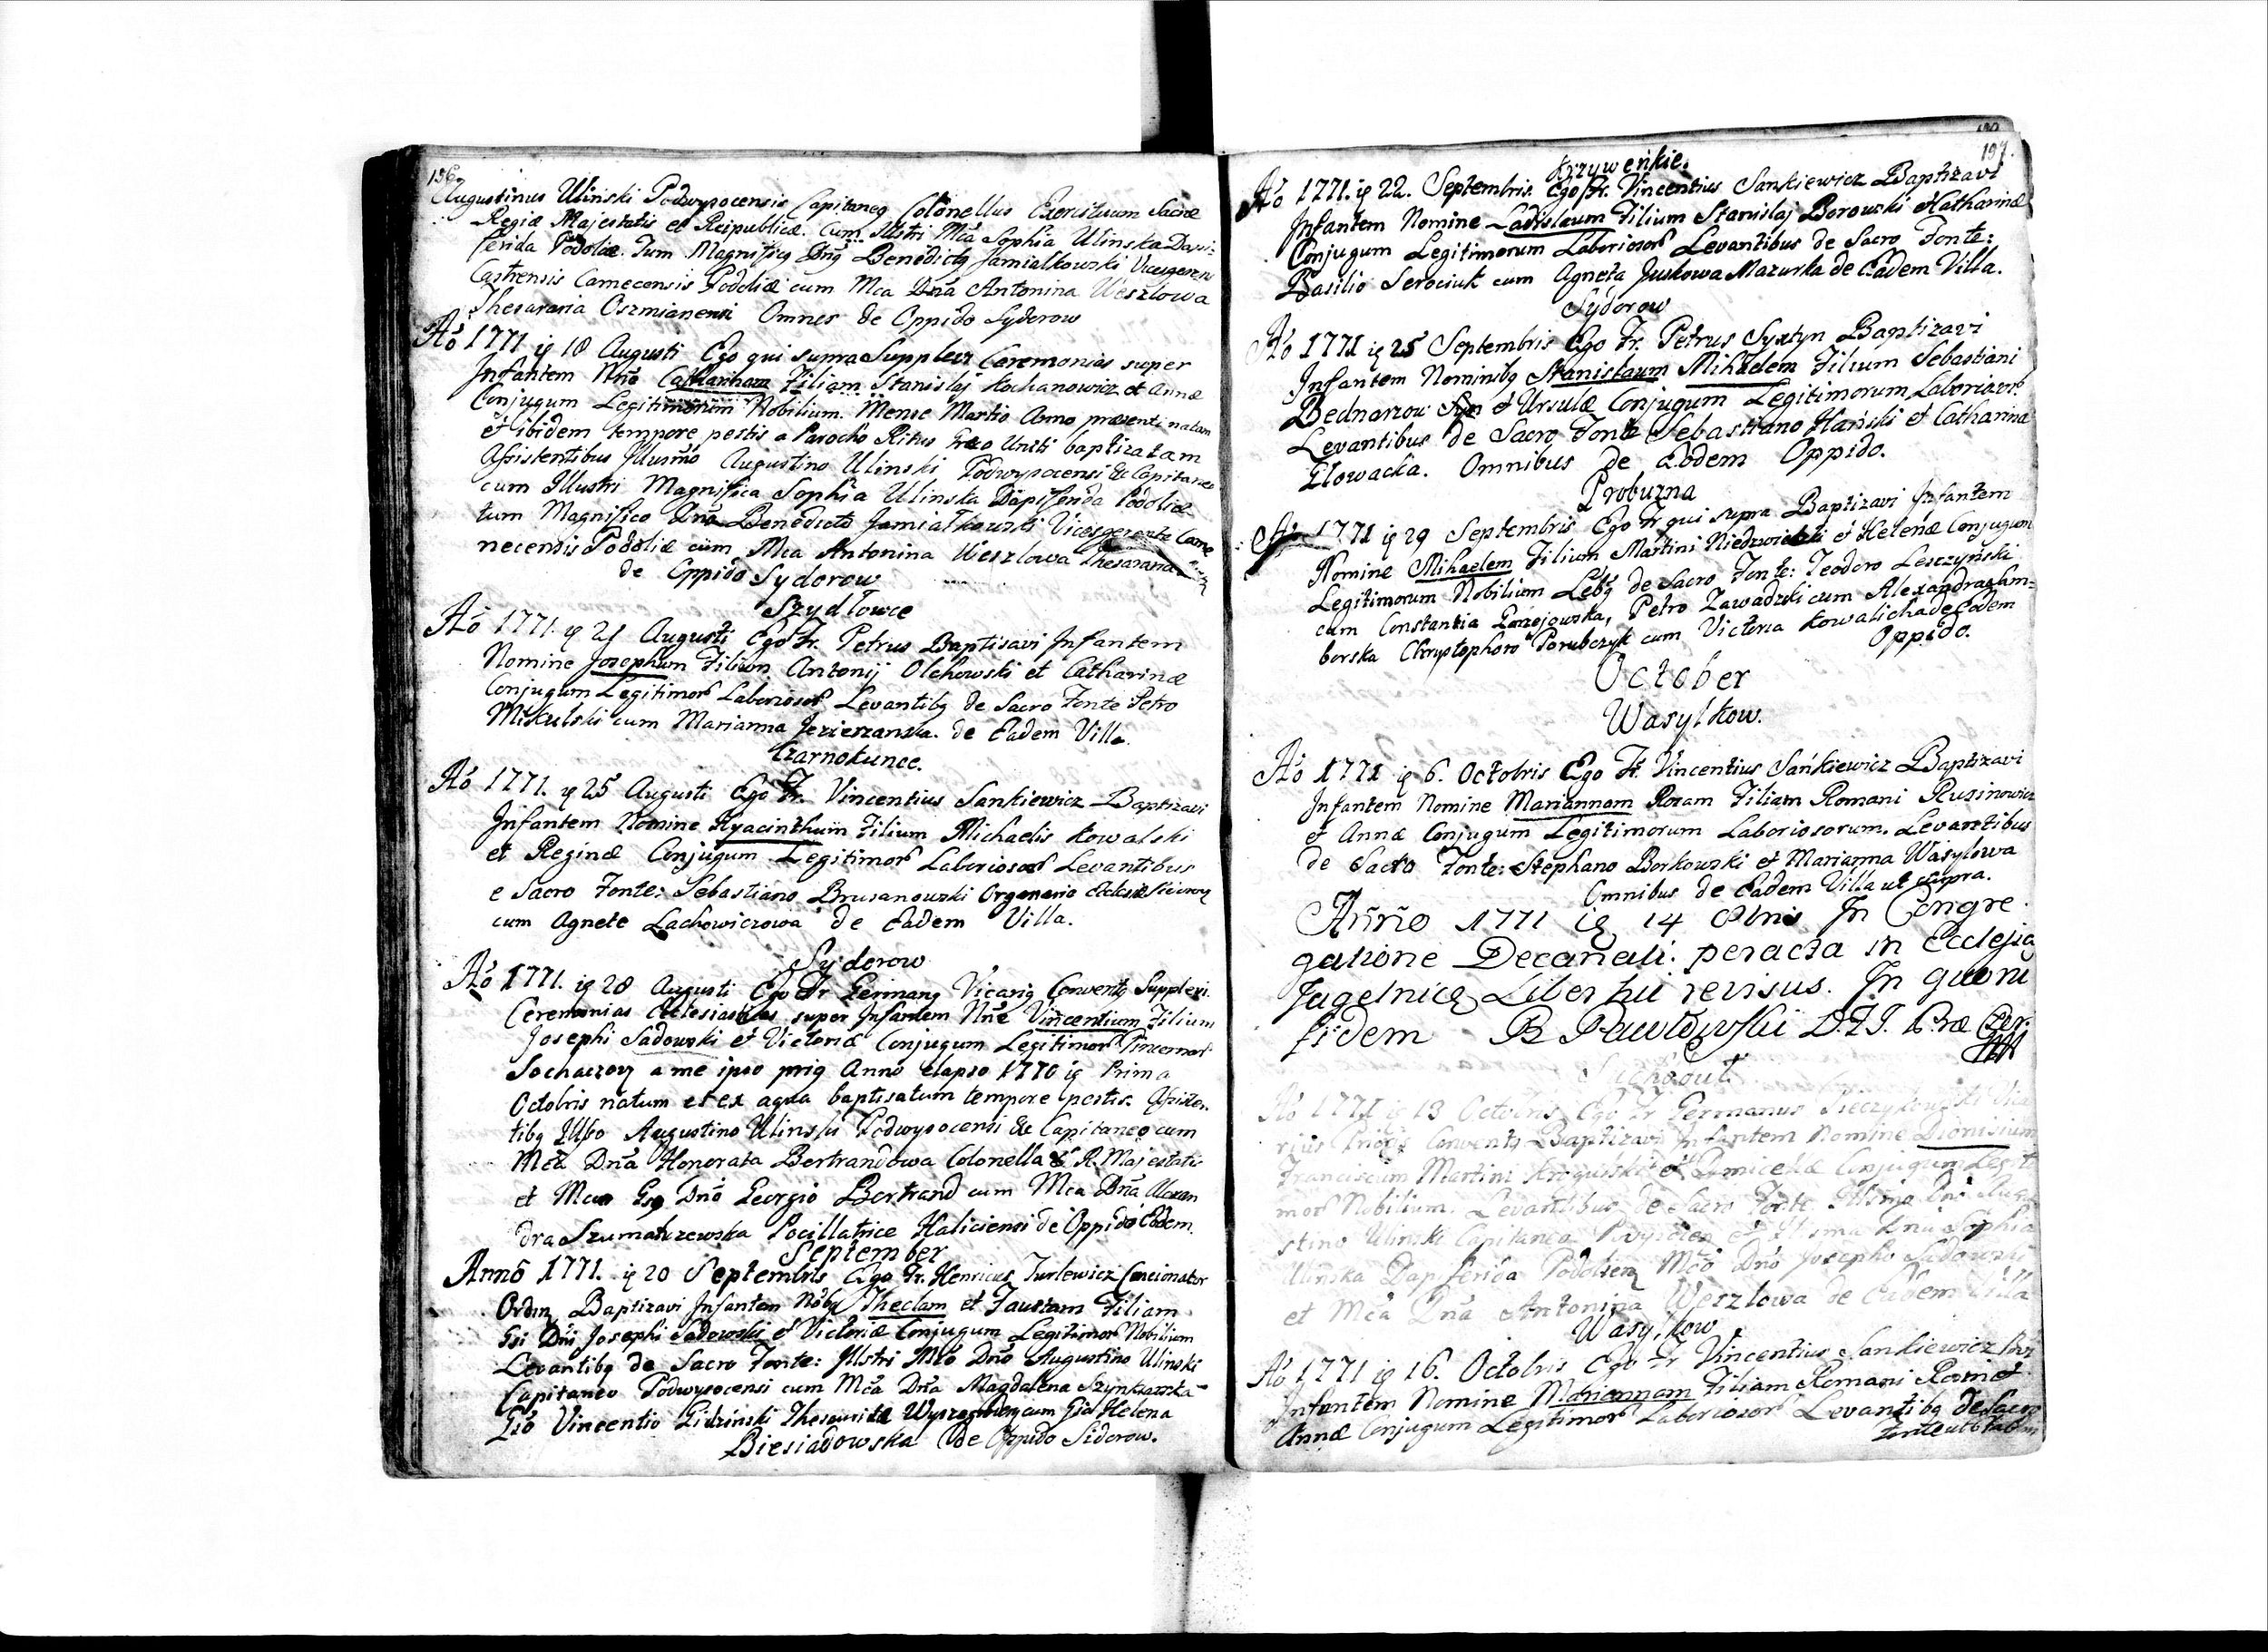 196
Augustinus Ulinski Podwysocensis Capitaneq Colonellus Exercituum Sacræ
Regiæ Majestatis et Reipublicæ. Cum Illstri Mcã Sophia Ulinska Dapi-
ferida Podoliæ. Tum Magnificq Dnq Benedictq Jamiałkowski Vicesgerens
Castrensis Camecensis Podoliæ cum Mca Dna Antonina Weszlowa
Thesararia Oszmianensi Omnes de Oppido Syderow
Aó 1771 ig 18 Augusti Ego qui supra Supplevi Ceremonias super
Infantem Nnẽ Catharinam Filiam Stanislaj Kochanowicz et Annæ
Conjugum Legitimorum Nobilium. Mense Martio Anno præsenti natam
et ibidem tempore pestis a Parocho Ritus Uniti baptizatam
Assistentibus Augustino Ulinski Podwysocensi &c Capitaneo
cum Illustri Magnifica Sophia Ulinska Dapiferida Podoliæ
tum Magnifico Dnõ Benedicto Jamiałkowski Vicesgerente Came
necensis Podoliæ cum Mca Antonina Weszlowa Thesararia
de Oppido Sydorow
Szydłowce
Aó 1771. ig 21 Augusti Ego Fr. Petrus Baptisavi Infantem
Nomine Josephum Filium Antonij Olchowski et Catharinæ
Conjugum Legitimor Laborioser Levantibq de Sacro Fonte Petro
Mikulski cum Marianna Jezierzanska de Eadem Villa.
Czarnokunce.
Aó 1771. ig 25 Augusti Ego Fr. Vincentius Sankiewicz Baptizavi
Infantem Nomine Hyacinthum Filium Michaelis Kowalski
et Reginæ Conjugum Legitimor Laborioser Levantibus
e Sacro Fonte: Sebastiano Brusanowski Organario Eclesiæ
cum Agnete Lachowiczowa de Eadem Villa.
Sydorow
Aó 1771. ig 28 Augusti Ego Fr Germanq Vicariq Conventq Supplevi
Ceremonias Eclesiasticas super Infantem Nnẽ Vincentium Filium
Josephi Sadowski et Victoriæ Conjugum Legitimor Pincernor
Sochaczov a me ipso priq Anno elapso 1770 ig Prima
Octobris natum et ex aqua baptisatum tempore pestis. Assisten
tibq Illsso Augustino Ulinski Podwysocensi &c Capitaneo cum
Mcã Dnã Honorata Bertrandowa Colonella S R. Majestatis
et Mco Gsq Dnõ Georgio Bertrand cum Mca Dnã Alexan
dra Szumanczewska Pocillatrice Haliciensi de Oppido Eodem.
September
Annõ 1771. ig 20 Septembris Ego Fr. Henricus Turlewicz Concionator
Ordin Baptizavi Infantem Nõbq Theclam et Faustam Filiam
Gsi Dnj Josephi Sadowski et Victoriæ Conjugum Legitimor Nobilium
Levantibq de Sacro Fonte: Illstri Mcõ Dnõ Augustino Ulinski
Capitaneo Podwysocensi cum Mcã Dnã Magdalena
Gsõ Vincentio Gidzinski cum Gsa Helena
Biesiadowska de Oppido Siderow.
197.
Krzyweńkie.
Aó 1771. ig 22. Septembris Ego Fr. Vincentius Sankiewicz Baptizavi
Infantem Nomine Ladislaum Filium Stanislaj Borowski et Katharinæ
Conjugum Legitimorum Laborioser Levantibus de Sacro Fonte:
Basilio Serociuk cum Agneta Juskowa Mazurka de Eadem Villa.
Sydorow
Aó 1771 ig 25 Septembris Ego Fr. Petrus Syxtyn Baptizavi
Infantem Nominibq Stanislaum Mihaelem Filium Sebastiani
Bednarzow Syn et Ursulæ Conjugum Legitimorum Laborioser.
Levantibus de Sacro Fonte Sebastiano Hański et Catharina
Głowacka. Omnibus de eodem Oppido.
Probuzna
Aó 1771 ig 29 Septembris Ego Fr qui supra Baptizavi Infantem
Nomine Mihaelem Filium Martini Niedzwiecki et Helenæ Conjugum
Legitimorum Nobilium Lebq de Sacro Fonte: Teodoro Lesczyński
cum Constantia, Petro Zawadzki cum Alexandra Cam-
borska Chryptophoro Porubczyk cum Victoria Kowalicha de Eodem
Oppido.
October
Wasylkow.
Aó 1771 ig 6. Octobris Ego Fr. Vincentius Sańkiewicz Baptizavi
Infantem Nomine Mariannam Rozam Filiam Romani Ruzinowicz
et Annæ Conjugum Legitimorum Laboriosorum. Levantibus
de Sacro Fonte: Stephano Borkowski et Marianna Wasylowa
Omnibus de Eadem Villa ut supra.
Añño 1771 ig 14 8bris In Congre
gatione Decanali peracta in Ecclesia
Jagelnicę Liber hic revisus. In quorũ
fidem B Pawłowski
Suchodul
Aó 1771 ig 13 Octobris Ego Fr Germanus Pieczykowski Vica
rius Conventq Baptizavi Infantem Nomine Dionisium
Franciscum Martini et Conjugum Legiti
mor Nobilium. Levantibus de Sacro Fonte Illsmo Dnõ Augu
stino Ulinski Capitaneo et Illsma Dna Sophia
Ulinska Dapiferida Podoliens Mcõ Dnõ Josepho Sadowski
et Mcã Dnã Antonina Weszlowa de Eadem Villa
Wasylkow
Aó 1771 ig 16. Octobris Ego Fr Vincentius Sankiewicz
Infantem Nomine Mariannam Filiam Romani et
Annæ Conjugum Legitimor Laborioser Levantibq de Sacro
Fonte